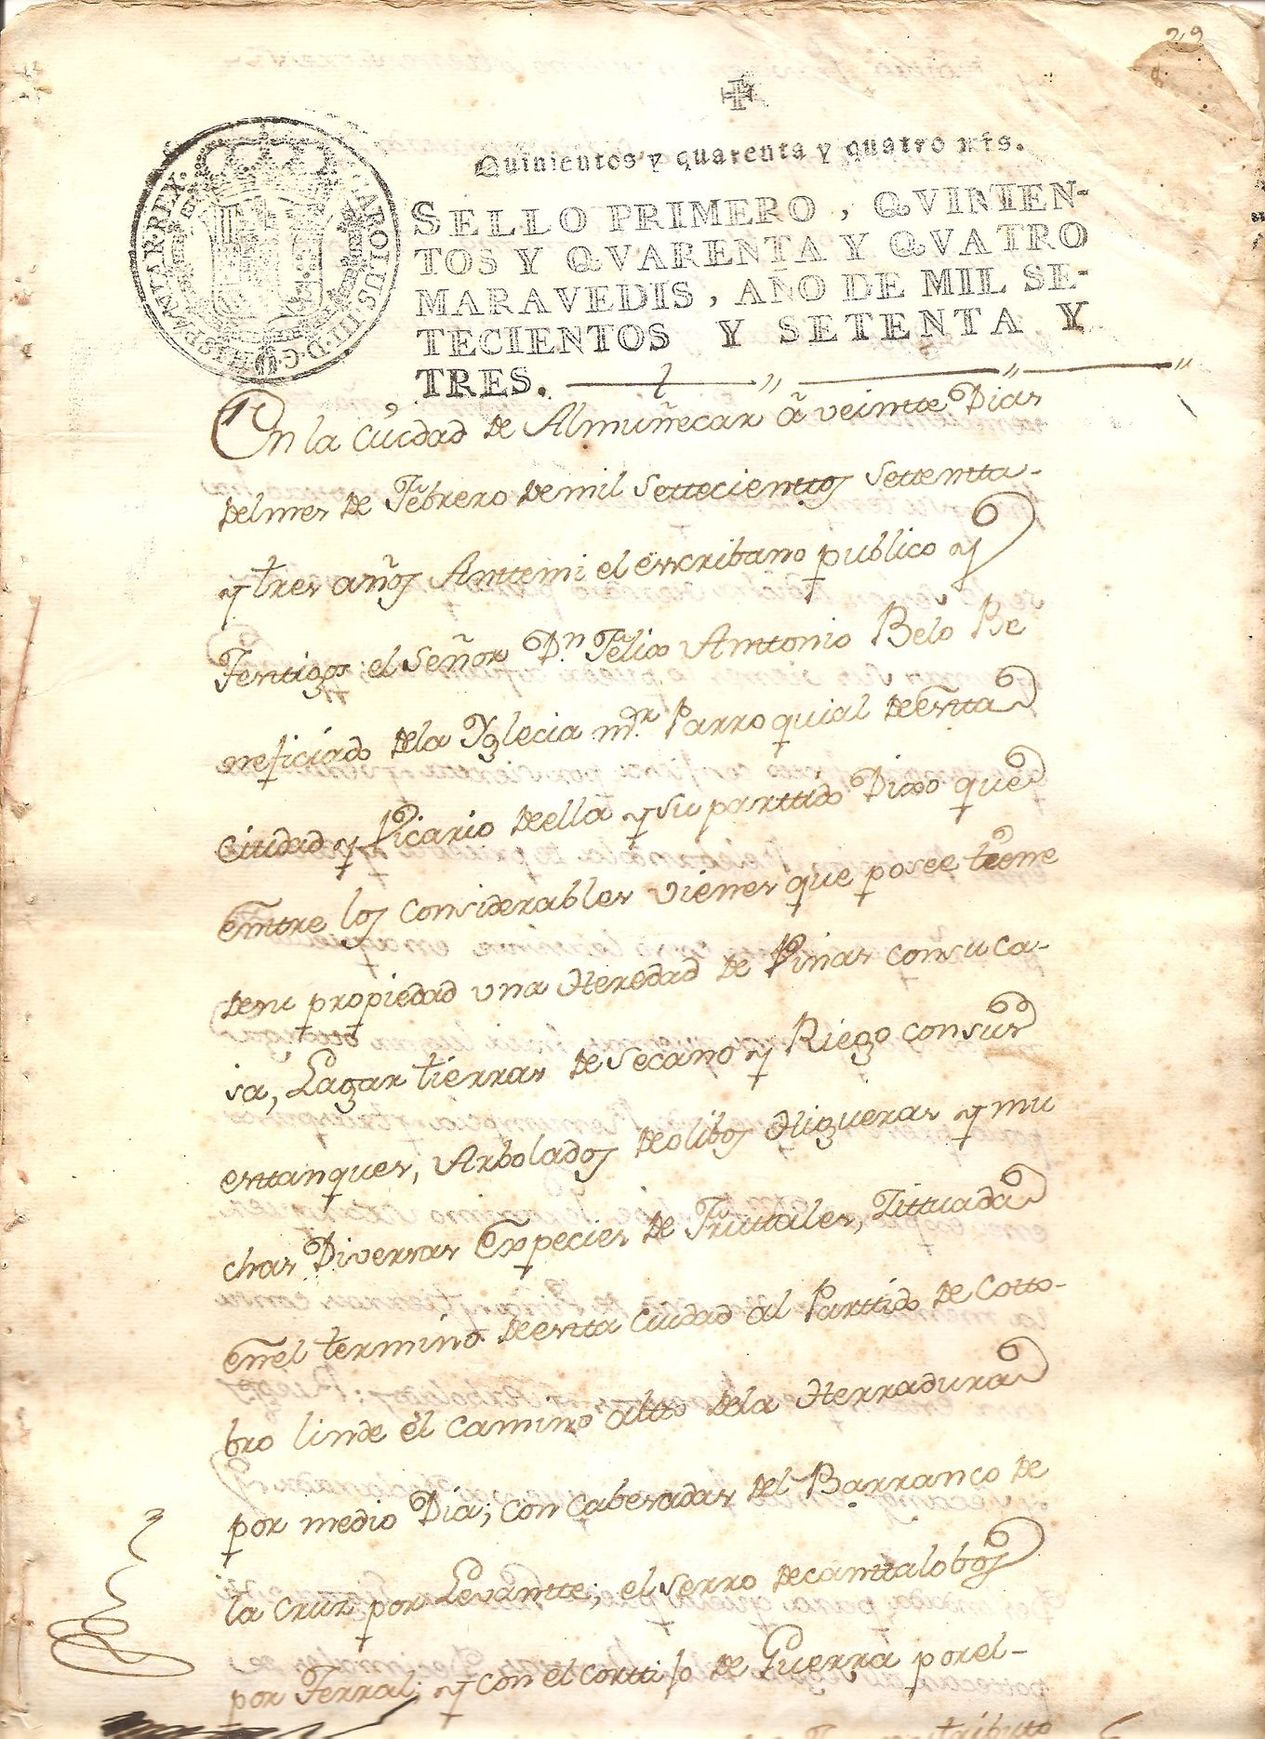 29
Quinientos y quarenta y quatro mrs.
SELLO PRIMERO, QVINIEN-
TOS Y QVARENTA Y QVATRO
MARAVEDIS, AÑO DE MIL SE-
TECIENTOS Y SETENTA Y
TRES.
CAROLUS III D G HISPANIAR REX
En la Ciudad de Almuñecar â veintte Dias
del mes de Febrero de mil Settecienttos Settentta-
y tres años Anttemi el escribano publico y
Testigos el Señor Dn. Felix Anttonio Belo Be
neficiado de la Yglecia mr. Parroquial de estta
Ciudad y Vicario de ella y su parttido Dixo que
Enttre los considerables vienes que posee tiene
de su propiedad una Heredad de Viñas con su ca-
sa, Lagar tierras de secano y Riego con sus
estanques, Arbolados de olibos Higueras y mu
chas Diversas Expecies de Fruttales, Sittuada
en el termino de estta Ciudad al Parttido de Cotto-
bro linde el camino altto de la Herradura
por medio Dia; con cabesadas del Barranco de
la Cruz por Levantte; el serro de canttalobos
por Terral; y con el corttijo de Guerra por el-
tributo